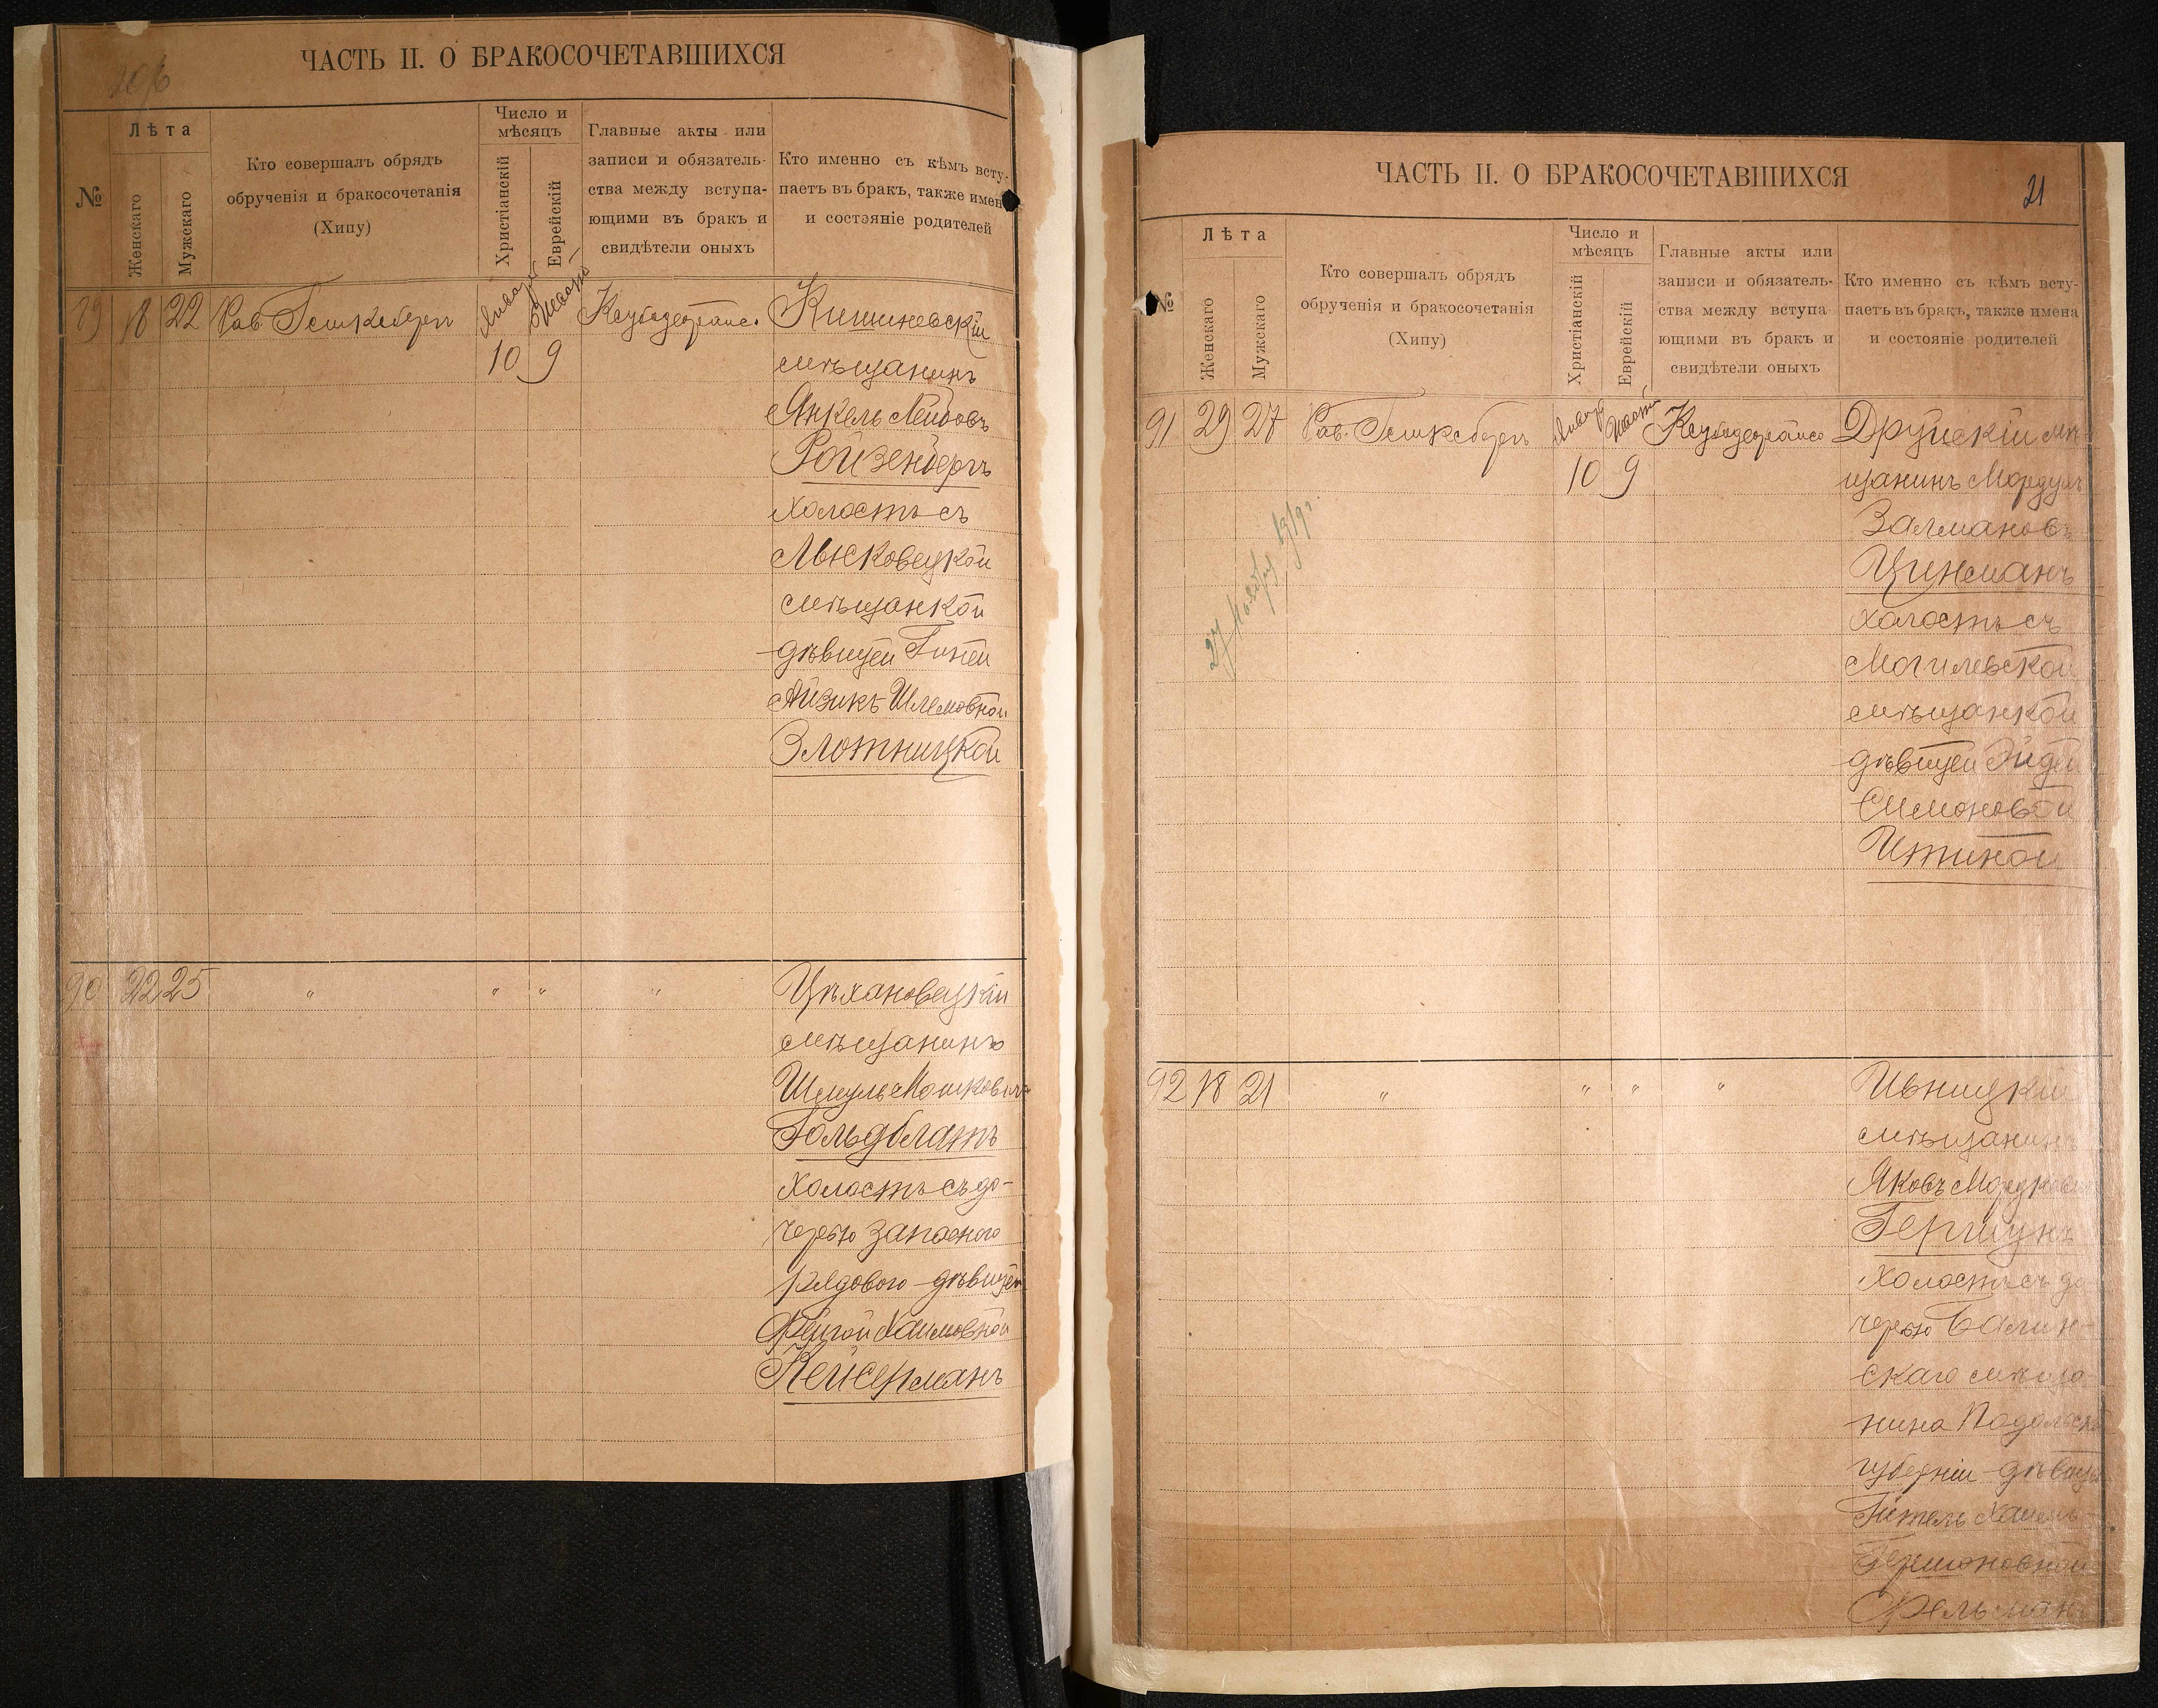 ЧАСТЬ II. О БРАКОСОЧЕТАВШИХСЯ
№
Лѣта
Женскаго
Мужскаго
Кто совершалъ обрядъ
обрученія и бракосочетанія
(Хипу)
Число и
мѣсяцъ
Христіанскій
Еврейскій
Главные акты или
записи и обязатель-
ства между вступа-
ющими въ бракъ и
свидѣтели оныхъ
Кто именно съ кѣмъ всту-
паетъ въ бракъ, также имен
и состэяніе родителей
89 18 22 Рав.
10 9
Кишиневскій
мѣщанинъ
Янкель Лейбовъ
Ройзенбергъ
холостъ съ
Лысковецкой
мѣщанкой
дѣвицей
Айзикъ Шлемовной
Злотницкой
90 22 25 " " " "
Цѣхановецкій
мѣщанинъ
Шмуль Мошковичъ
Гольдблатъ
холостъ съ до-
черью запасного
рядового дѣвицей
Фейгой Хаимовной
Кейсерманъ
ЧАСТЬ II. О БРАКОСОЧЕТАВШИХСЯ
21
№
Лѣта
Женскаго
Мужскаго
Кто совершалъ обрядъ
обрученія и бракосочетанія
(Хипу)
Число и
мѣсяцъ
Христіанскій
Еврейскій
Главные акты или
записи и обязатель-
ства между вступа-
ющими въ бракъ и
свидѣтели оныхъ
Кто именно съ кѣмъ всту-
паетъ въ бракъ, также имена
и состояніе родителей
91 29 27 Рав.
10 9
Друйскій мѣ-
щанинъ Мордухъ
Залмановъ
Цинманъ
холостъ съ
Могилевской
мѣщанкой
дѣвицей Эйдей
Симоновой
Итиной
27
92 18 21 " " " "
Ивницкій
мѣщанинъ
Яковъ
Гершунъ
холостъ съ до-
черью Балин-
скаго мѣща-
нина Подольской
губерніи дѣвицей
Гитель Хаимъ
Гершоновной